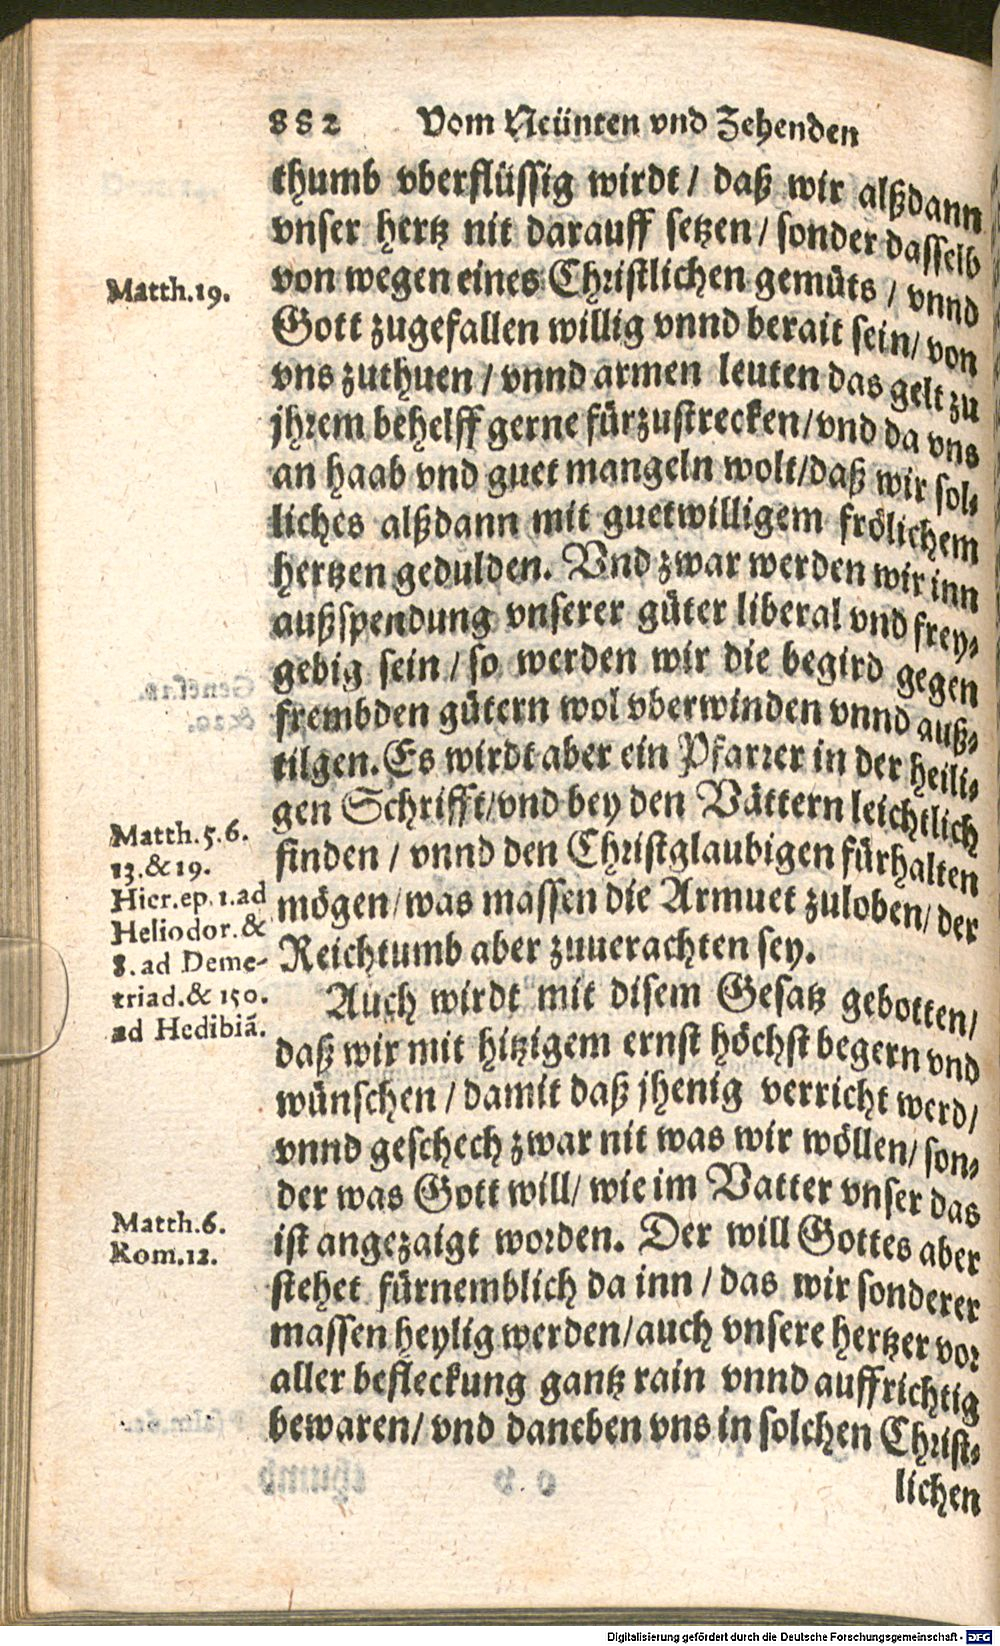 882 Vom Neünten vnd Zehenden
thumb vberflüssig wirdt / daß wir alßdann
vnser hertz nit darauff setzen / sonder dasselb
Matth.19.
von wegen eines Christlichen gemüts / vnnd
Gott zugefallen willig vnnd berait sein / von
vns zuthuen / vnnd armen leuten das gelt zu
jhrem behelff gerne fürzustrecken / vnd da vns
an haab vnd guet mangeln wolt / daß wir sol-
liches alßdann mit guetwilligem frölichem
hertzen gedulden. Vnd zwar werden wir inn
außspendung vnserer güter liberal vnd frey-
gebig sein / so werden wir die begird gegen
frembden gütern wol vberwinden vnnd auß-
tilgen. Es wirdt aber ein Pfarrer in der heili-
gen Schrifft / vnd bey den Vättern leichtlich
finden / vnnd den Christglaubigen fürhalten
mögen / was massen die Armuet zuloben / der
Reichtumb aber zuuerachten sey.
Matth.5.6.
13.&19.
Hier.ep.1.ad
Heliodor.&
8.ad Deme-
triad.&150.
ad Hedibiã.
Auch wirdt mit disem Gesatz gebotten /
daß wir mit hitzigem ernst höchst begern vnd
wünschen / damit daß jhenig verricht werd /
vnnd geschech zwar nit was wir wöllen / son-
der was Gott will / wie im Vatter vnser das
ist angezaigt worden. Der will Gottes aber
Matth.6.
Rom.12.
stehet fürnemblich da inn / das wir sonderer
massen heylig werden / auch vnsere hertzer vor
aller befleckung gantz rain vnnd auffrichtig
bewaren / vnd daneben vns in solchen Christ-
lichen
Digitalisierung gefördert durch die Deutsche Forschungsgemeinschaft - DFG